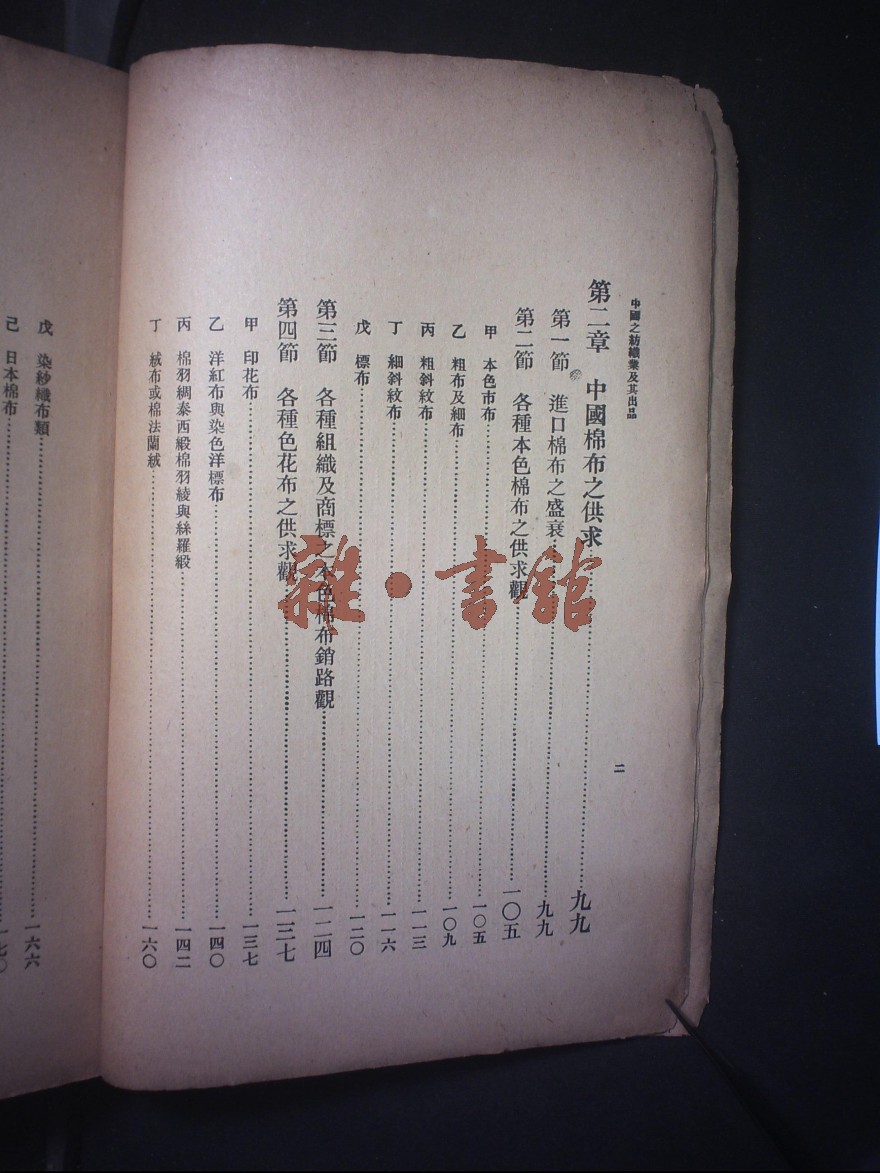 中國之紡織業及其出品
二
第二章 中國棉布之供求……九九
第一節 進口棉布之盛衰……九九
第二節 各種本色棉布之供求觀……一〇五
甲 本色市布……一〇五
乙 粗布及細布……一〇九
丙 粗斜紋布……一一三
丁 細斜紋布……一一六
戊 標布……一二〇
第三節 各種組織及商標之本色棉布銷路觀……一二四
第四節 各種色花布之供求觀……一三七
甲 印花布……一三七
乙 洋紅布與染色洋標布……一四〇
丙 棉羽綢泰西緞棉羽綾與絲羅緞……一四二
丁 絨布或棉法蘭絨……一六〇
戊 染紗織布類……一六六
己 日本棉布……一七〇
雜·書館